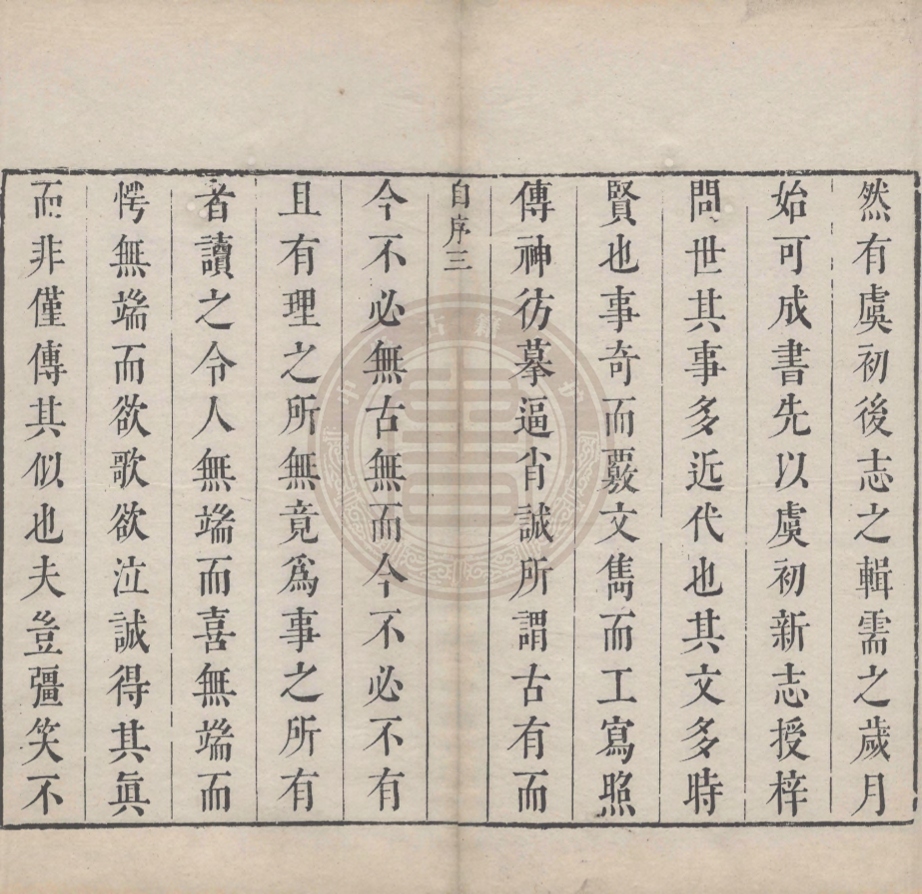 然有虞初後志之輯需之歲月
始可成書先以虞初新志授梓
問世其事多近代也其文多時
賢也事奇而覈文雋而工寫照
傳神彷摹逼肖誠所謂古有而
自序三
今不必無古無而今不必不有
且有理之所無竟爲事之所有
者讀之令人無端而喜無端而
愕無端而欲歌欲泣誠得其眞
而非僅傳其似也夫豈彊笑不